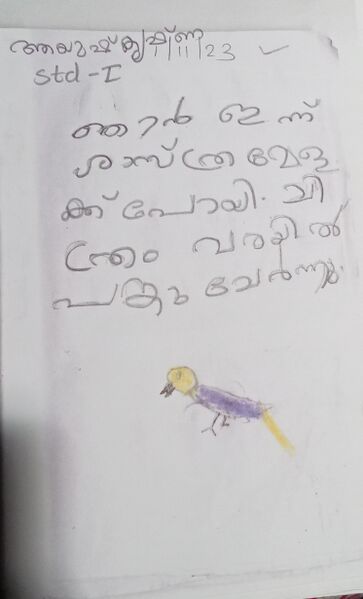 ആയുഷ്കൃഷ്ണ
11/11/23
std-I
ഞാൻ ഇന്ന്
ശാസ്ത്രമേള
ക്ക് പോയി. ചി
ത്രം വരയിൽ
പങ്കു ചേർന്നു.